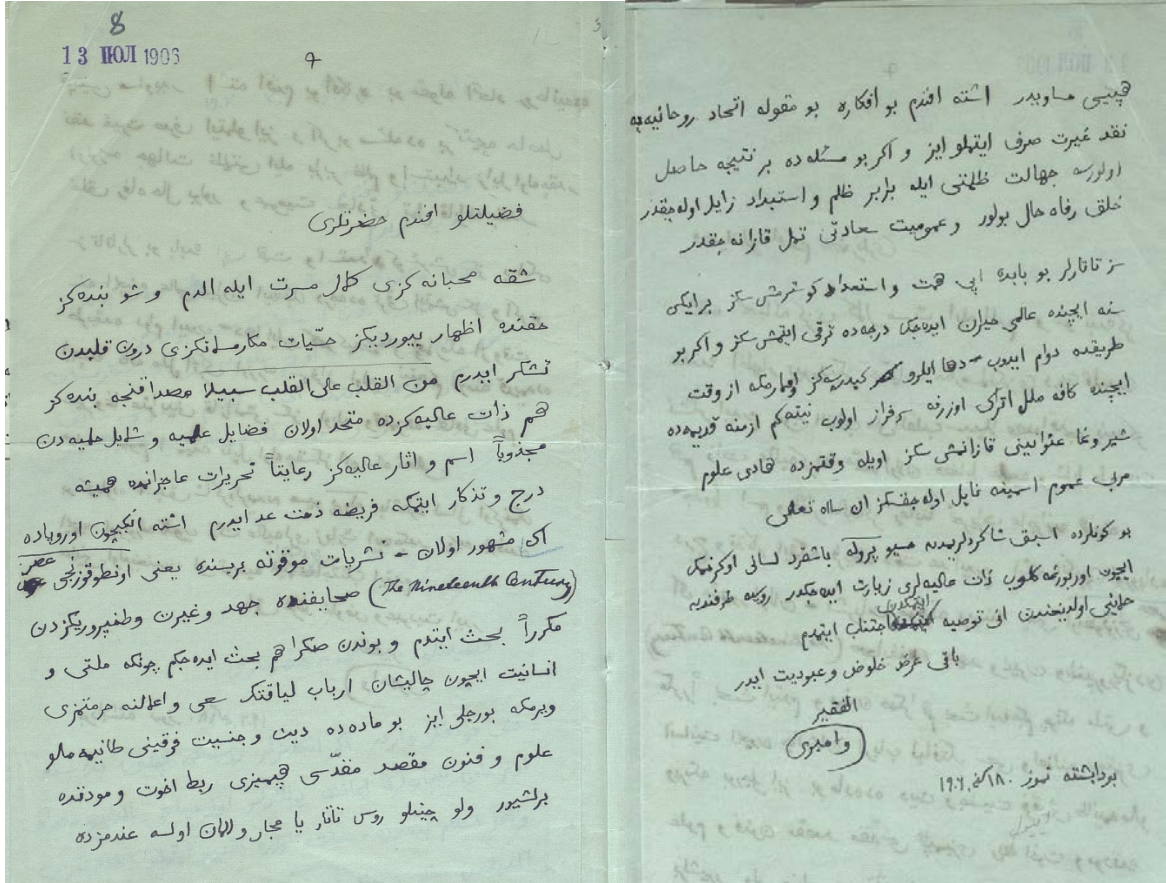 8
13 ИЮЛ 1906
فضيلتلو افندم حضرتلرى
شقه محبانه كزى كمال مسرت ايله الدم و شو بنده كز
حقنده اظهار بيورديكز حسّيات مكارمانكزى درون قلبدن
تشكر ايدرم من القلب على القلب سبيلا مصداقنجه بنده كز
هم ذات عاليه كزده متحد اولان فضايل علميه و شمايل حليمه دن
مجذوباً اسم و اثار عاليه كز رعايتاً تحريرات عاجزانمده هميشه
درج و تذكار ايتمكه فريضه ذمت عد ايدرم اشته انكيچون اوروپاده
اك مشهور اولان نشريات موقوته برسنده يعنى اون طوقوزنجى عصر
(The Nineteenth Century) صحايفنده جهد و غيرت و ظفيروريكزدن
مكرراً بحث ايتدم و بوندن صكرا هم بحث ايده جكم چونكه ملتى و
انسانيت ايچون چاليشان ارباب لياقتك سعى و اعمالنه حرمتمزى
ويرمكه بورجلى ايز بو ماده ده دين و جنسيت فرقينى طانيمه ملو
علوم و فنون مقصد مقدّسى هپيميزى ربط اخوت و مودتده
برلشيور ولو چينلو روس تاتار يا مجار و المان اولسه عندمزده
هپيسى مساويدر اشته افندم بو افكاره بو مقوله اتحاد روحانيه يه
نقد غيرت صرف ايتملو ايز و اكر بو مسئله ده بر نتيجه حاصل
اولورسه جهالت ظلمتى ايله برابر ظلم و استبداد زايل اوله جقدر
خلق رفاه حال بولور و عموميت سعادتى تمل قازانه جقدر
سز تاتارلر بو بابده ايى همت و استعداد كوسترمش سكز بر ايكى
سنه ايچنده عالمى حيران ايده جك درجه ده ترقى ايتمش سكز و اكر بو
طريقده دوام ايدوب دها ايلرو كيدرسه كز اومارمكه از وقت
ايچنده كافه ملل اتراك اوزرنه سرفراز اولوب نيته كم ازمنه قديمه ده
عنوانينى قازانمش سكز اويله وقتمزده هادى علوم
مربى عموم اسمينه نايل اوله جقسكز ان شاء الله تعالى
بو كونلرده اسبق شاكردلريمدن مسيو پروله باشقرد لسانى اوكرنمك
ايچون اورنبورغه كلوب ذات عاليه لرى زيارت ايده جكدر روسيه طرفندن
حمايتى اولديغندن انى توصيه ايتمكدن اجتناب ايتدم
باقى عرض خلوص و عبوديت ايدر
الفقير
وامبرى
بوداپشته تموز ١٨٠ ١٩٠٦